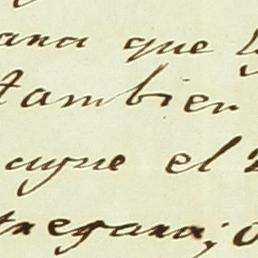 ana que
tambien
cuyne el
tregara;